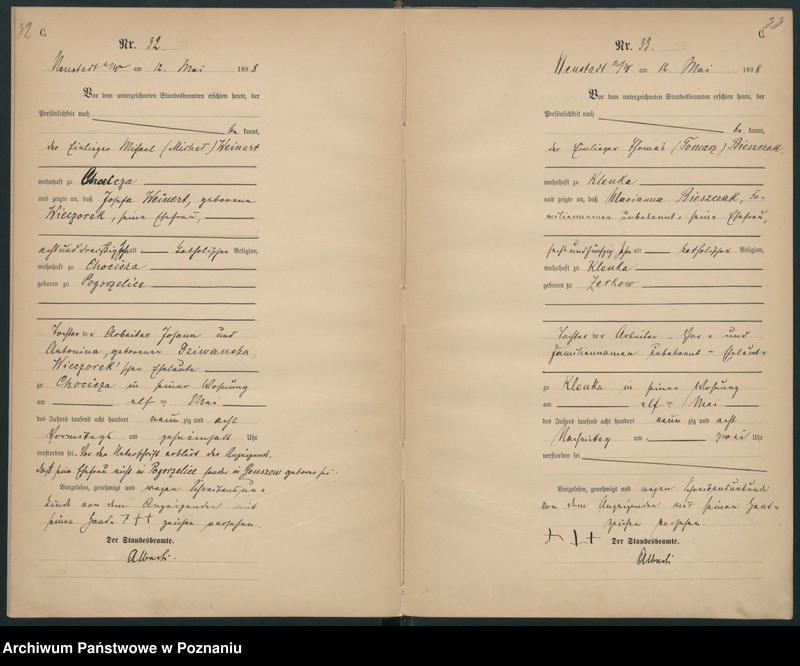 32
C.
Nr. 32.
Neustadt a/W am 12. Mai 1898
Vor dem unterzeichneten Standesbeamten erschien heute, der
Persönlichkeit nach
be kannt,
der Einlieger Michael (Michał) Weinert
wohnhaft zu Chocicza
und zeigte an, daß Josefa Weinert, geborene
Wieczorek, seine Ehefrau,
achtunddreißig Jahre alt katholischer Religion,
wohnhaft zu Chocicza
geboren zu Pogorzelice
Tochter der Arbeiter Johann und
Antonina, geborener
Wieczorek'schen Eheleute
zu Chocicza in seiner Wohnung
am elf ten Mai
des Jahres tausend acht hundert neun zig und acht
Vormittags um zehneinhalb Uhr
verstorben sei. Vor der Unterschrift erklärt der Anzeigende,
daß seine Ehefrau nicht in Pogorzelice sondern in geboren sei.
Vorgelesen, genehmigt und wegen Schreibensun-
kunde von dem Anzeigenden mit
seinen Handzeichen versehen.
+++
Der Standesbeamte.
Alberti
33
C.
Nr. 33.
Neustadt a/W am 12. Mai 1898
Vor dem unterzeichneten Standesbeamten erschien heute, der
Persönlichkeit nach
be kannt,
der Einlieger Thomas (Tomasz) Bieszczak,
wohnhaft zu Klenka
und zeigte an, daß Marianna Bieszczak, Fa-
miliennamen unbekannt, seine Ehefrau,
sechsundfünfzig Jahre alt katholischer Religion,
wohnhaft zu Klenka
geboren zu Zerkow
Tochter der Arbeiter – Vor- und
Familiennamen unbekannt – Eheleute
zu Klenka in seiner Wohnung
am elf ten Mai
des Jahres tausend acht hundert neun zig und acht
Nachmittag um zwei Uhr
verstorben sei
Vorgelesen, genehmigt und wegen Schreibensunkunde
von dem Anzeigenden mit seinen Hand-
zeichen versehen.
+++ Der Standesbeamte.
Alberti
Archiwum Państwowe w Poznaniu